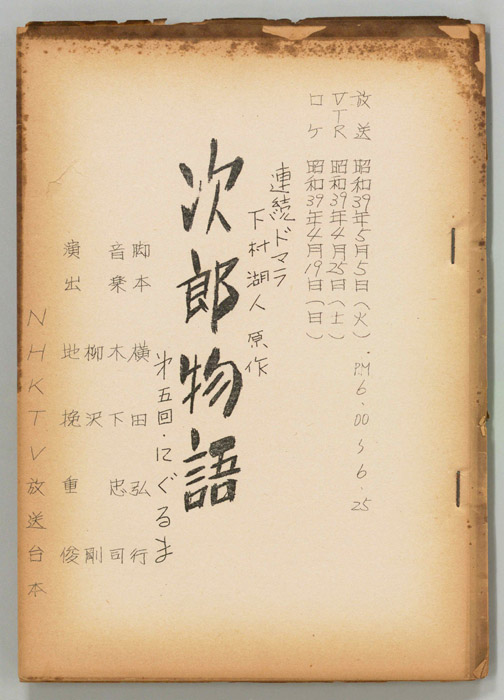 放送 昭和39年5月5日(火)・PM6.00〜6.25
VTR 昭和39年4月25日(土)
ロケ 昭和39年4月19日(日)
連続ドマラ
下村湖人 原作
次郎物語
第五回・にぐるま
脚本 横田弘行
音楽 木下忠司
柳沢剛
演出 地挽重俊
NHKTV放送台本